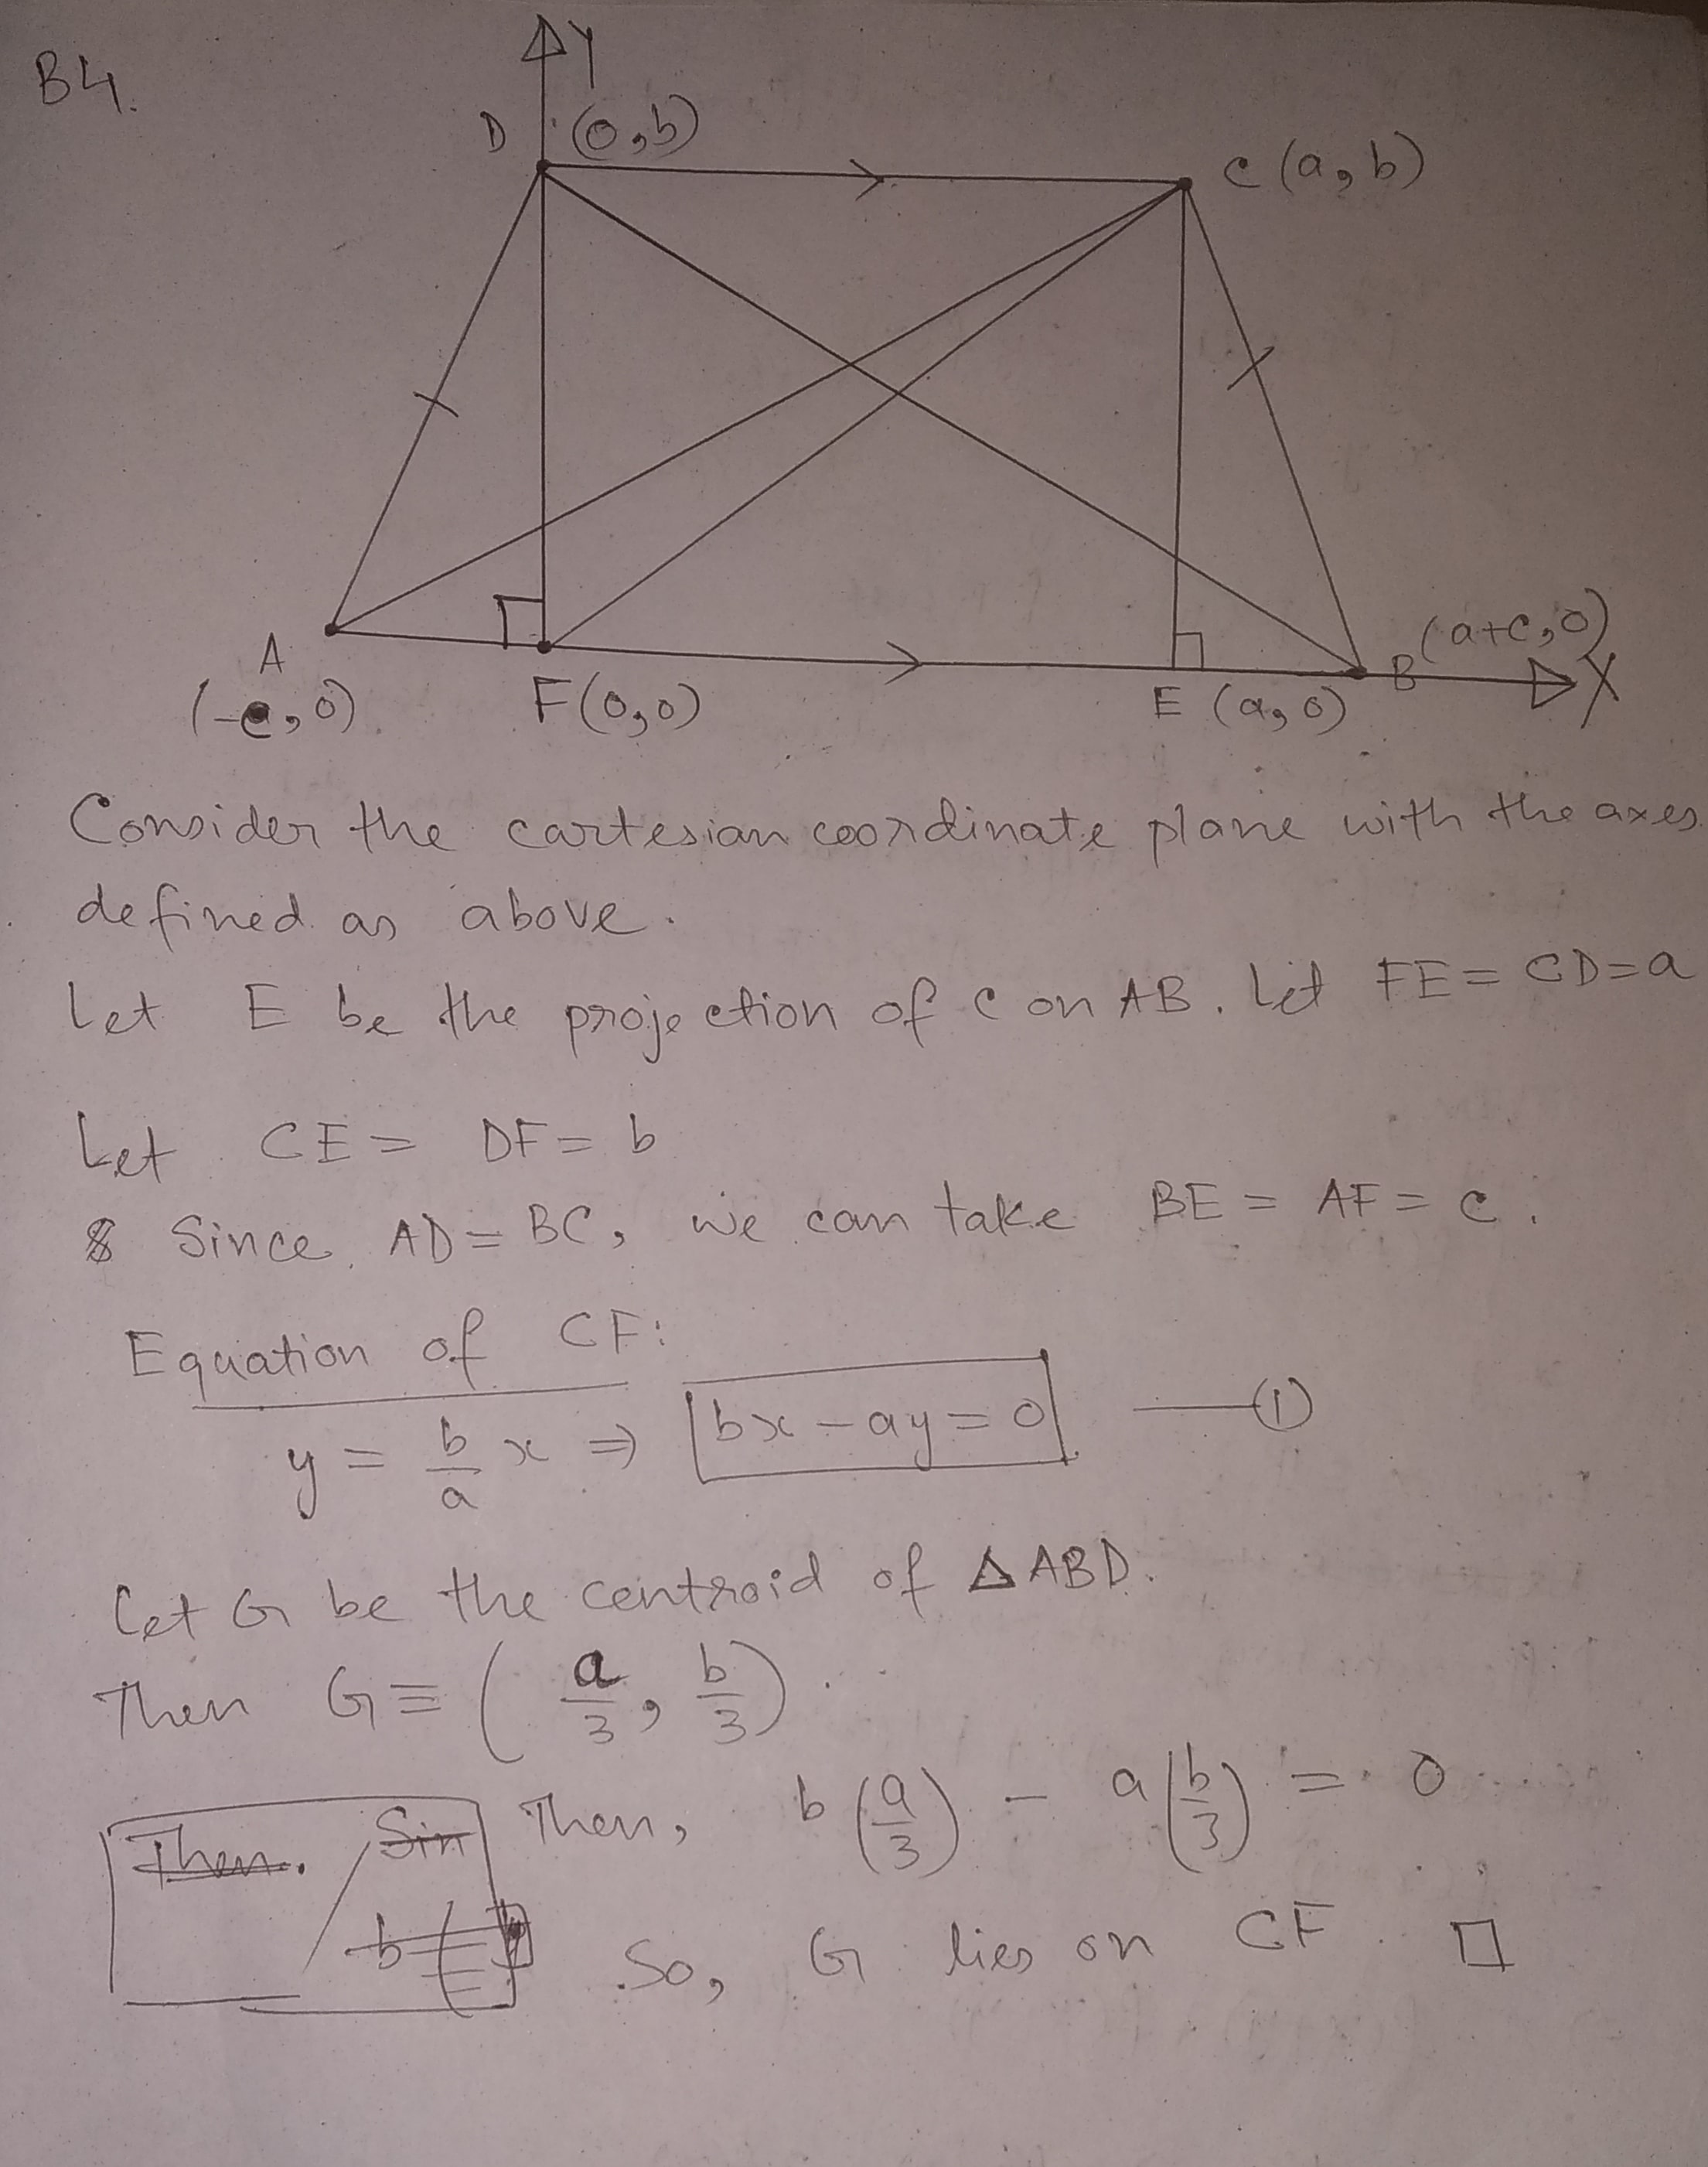 B4.
Y
D (0,b)
C (a,b)
A
(-c,0)
F(0,0)
E (a,0)
B (a+c,0)
X
Consider the cartesian coordinate plane with the axes
defined as above.
Let E be the projection of C on AB. Let FE = CD = a
Let CE = DF = b
& Since AD = BC, we can take BE = AF = c.
Equation of CF:
y = b/a x ⇒ bx - ay = 0 —(1)
Let G be the centroid of △ABD.
Then G ≡ (a/3, b/3).
Then. Sin Then, b(a/3) - a(b/3) = 0
b( So, G lies on CF. □